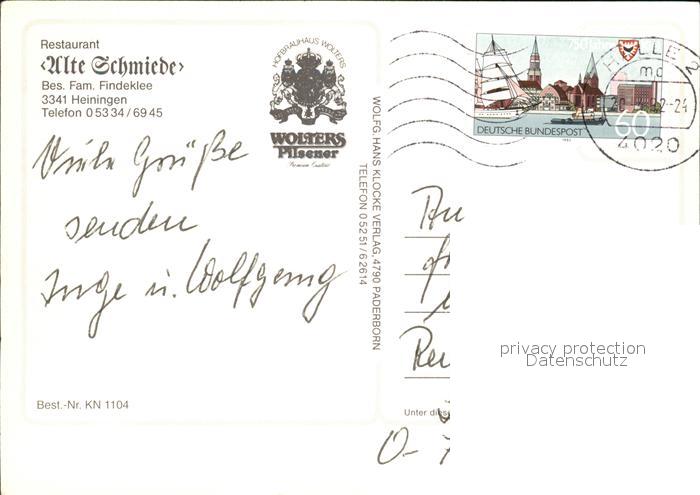 Restaurant
‹Alte Schmiede›
Bes. Fam. Findeklee
3341 Heiningen
Telefon 0 53 34 / 69 45
HOFBRAUHAUS WOLTERS
WOLTERS
Pilsener
Premium Qualität
Viele Grüße
senden
Inge u. Wolfgang
Best.-Nr. KN 1104
WOLFG. HANS KLOCKE VERLAG, 4790 PADERBORN
TELEFON 0 52 51 / 6 26 14
750 Jahre
DEUTSCHE BUNDESPOST
60
HALLE 2
md
92-24
4020
An
Unter dies
O-
privacy protection
Datenschutz